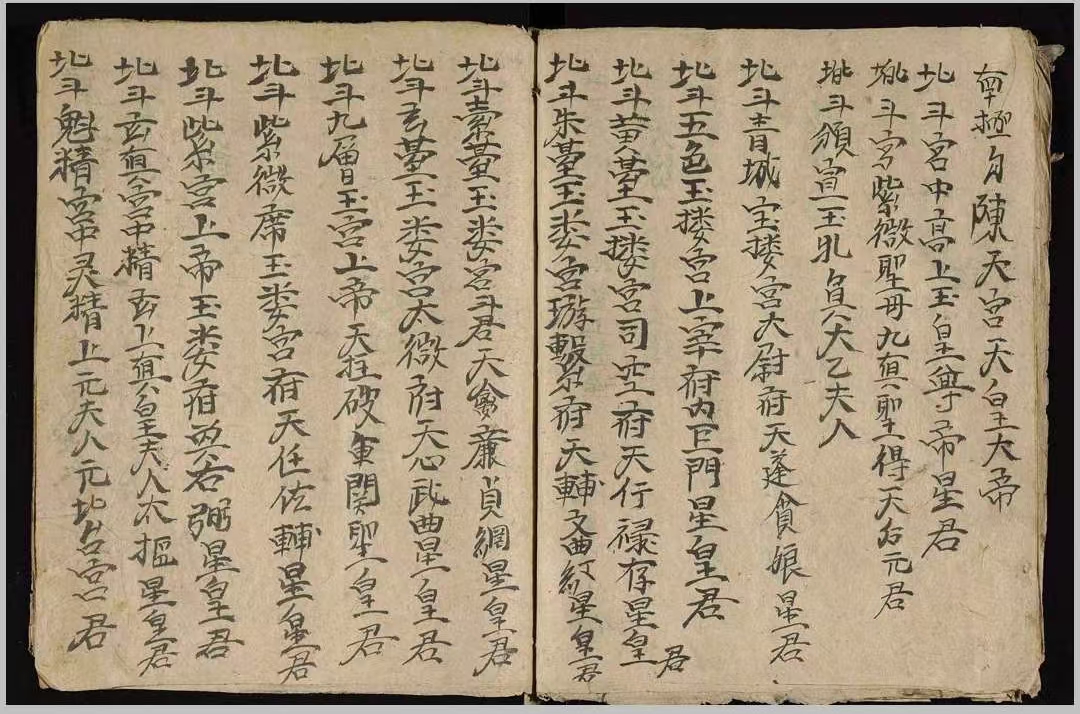 南極勾陳天宮天皇大帝
北斗宮中高上玉皇尊帝星君
北斗宮紫微聖母九真聖得天后元君
北斗領宣玉札真大乙夫人
北斗青城宝搂宮大尉府天蓬貪娘星君
北斗五色玉搂宮上宰府内巨門星皇君
北斗黄臺玉搂宮司空府天行禄存星皇君
北斗朱臺玉娄宮璇璣府天輔文曲紀星皇君
北斗素臺玉娄宮斗君天禽廉貞綱星皇君
北斗玄臺玉娄宮太微府天心武曲星皇君
北斗九層玉宮上帝天柱破軍関聖皇君
北斗紫微席玉娄宮府天任佐輔星皇君
北斗紫宮上帝玉娄府 右弼星皇君
北斗玄真宮中精玄上真皇夫人太摳星皇君
北斗魁精宮中灵精上元夫人元 宮君